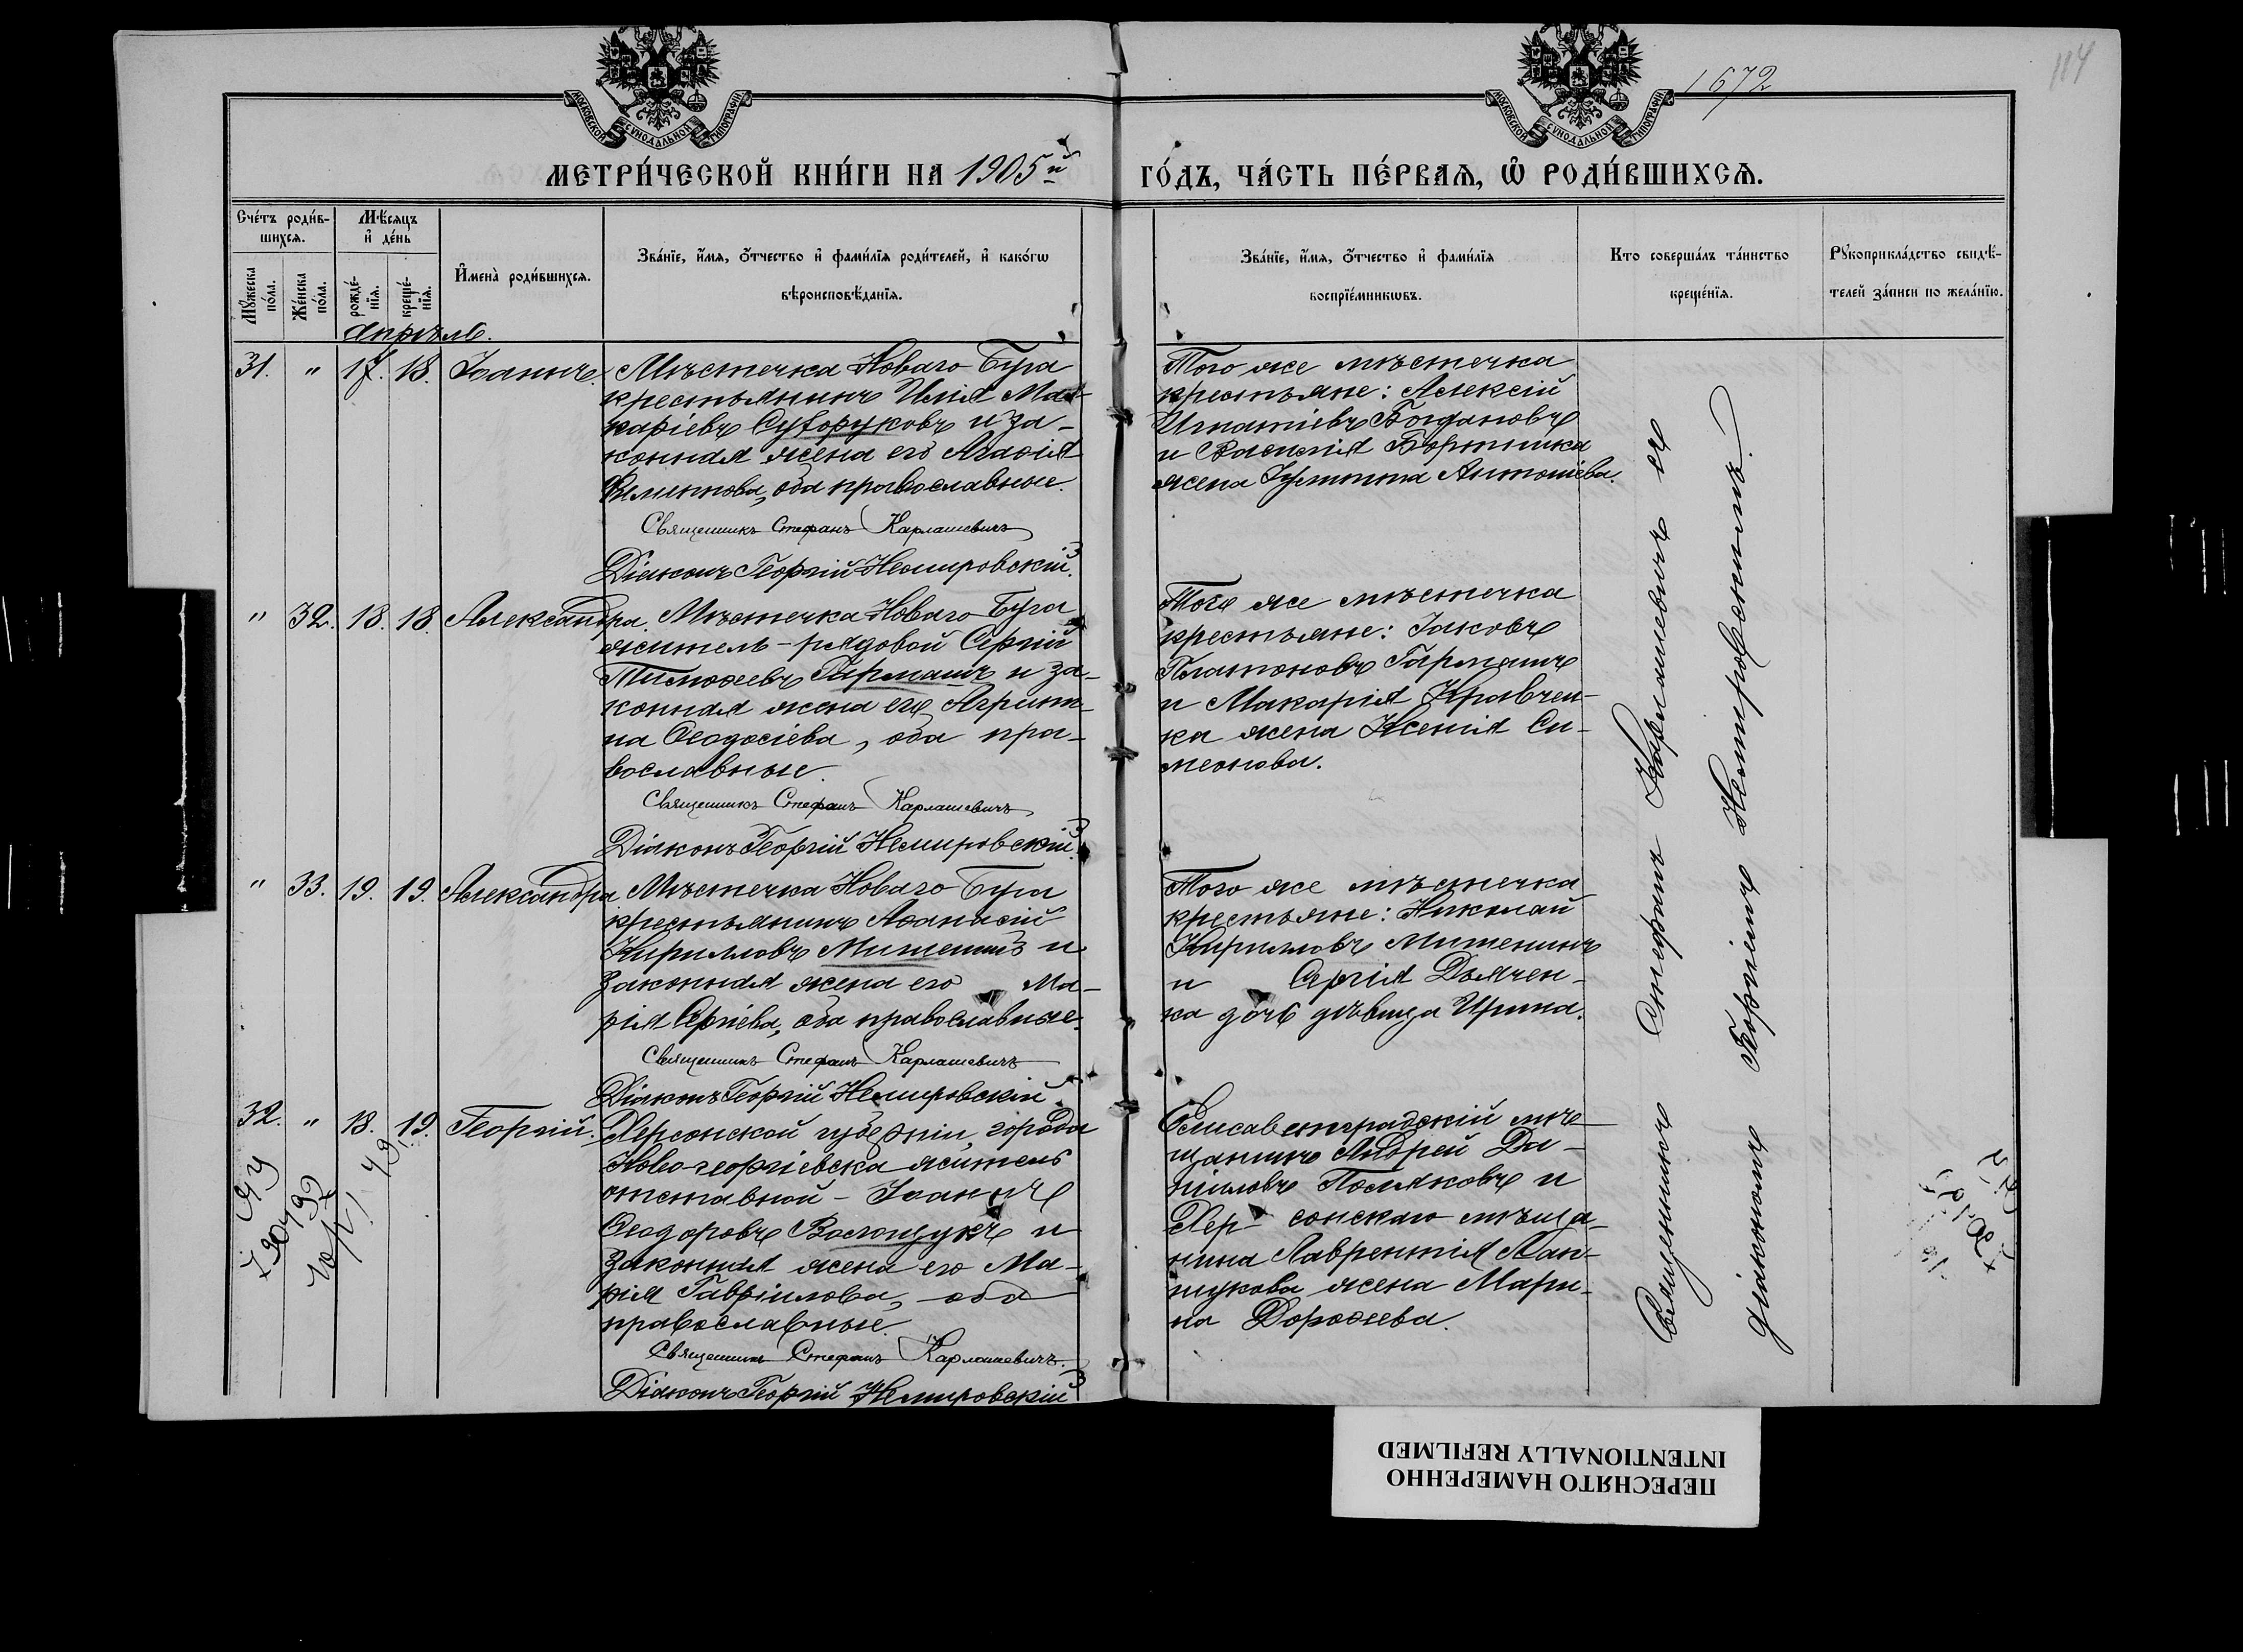 МОСКОВСКОЙ СѴНОДАЛЬНОЙ ТИПОГРАФІИ
МОСКОВСКОЙ СѴНОДАЛЬНОЙ ТИПОГРАФІИ
1672
114
МЕТРИ́ЧЕСКОЙ КНИ́ГИ НА 1905й
ГО́ДЪ, ЧА́СТЬ ПЕ́РВАѦ, Ѡ РОДИ́ВШИХСѦ.
Сче́тъ роди́в-
шихсѧ.
Мѣ́сяцъ
и҆ де́нь
Мꙋ́жеска
по́ла.
Же́нска
по́ла.
рожде́-
нїѧ.
креще́-
нїѧ.
И҆мена̀ роди́вшихсѧ.
Зва́нїе, и҆́мѧ, ѻ҆́тчество и҆ фами́лїѧ роди́телей, и҆ како́гѡ
вѣроисповѣ́данїѧ.
Зва́нїе, и҆́мѧ, ѻ҆́тчество и҆ фами́лїѧ
воспрїе́мникѡвъ.
Кто соверша́лъ та́инство
креще́нїѧ.
Рꙋкоприкла́дство свидѣ́-
телей за́писи по жела́нїю.
Апрѣль.
31. " 17. 18. Іоаннъ.
Мѣстечка Новаго Буга
крестьянинъ Илія Ма-
каріевъ Сухоруковъ и за-
конная жена его Агафія
Филиппова, оба православные.
Священникъ Стефанъ Карлашевичъ
Діаконъ Георгій Немировскій.
Того же мѣстечка
крестьяне: Алексій
Игнатіевъ Богдановъ
и Василія Бортника
жена Іулитта Антоніева.
" 32. 18. 18. Александра
Мѣстечка Новаго Буга
житель - рядовой Сергій
Тимофеевъ Гармашъ и за-
конная жена его Агрипп-
на Ѳеодосіева, оба пра-
вославные.
Священникъ Стефанъ Карлашевичъ
Діаконъ Георгій Немировскій.
Того же мѣстечка
крестьяне: Іаковъ
Платоновъ Гармашъ
и Макарія Кравчен-
ка жена Ксенія Си-
меонова.
" 33. 19. 19. Александра
Мѣстечка Новаго Буга
крестьянинъ Аѳанасій
Кирилловъ Мишенинъ и
законная жена его Ма-
рія Сергіева, оба православные.
Священникъ Стефанъ Карлашевичъ
Діаконъ Георгій Немировскій
Того же мѣстечка
крестьяне: Николай
Кирилловъ Мишенинъ
и Сергія Дьячен-
ка дочь дѣвица Ирина.
32. " 18. 19. Георгій.
Херсонской губерніи, города
Ново-георгіевска житель
отставной - Іоаннъ
Ѳеодоровъ Волощукъ и
законная жена его Ма-
рія Гавріилова, оба
православные.
Священникъ Стефанъ Карлашевичъ.
Діаконъ Георгій Немировскій
Елисаветградскій мѣ-
щанинъ Андрей Да-
ніиловъ Поляковъ и
Хер- сонскаго мѣща-
нина Лаврентія
жена Мари-
на Дороѳеева.
Священникъ Стефанъ Карлашевичъ съ
діакономъ Георгіемъ Немировскимъ.
ПЕРЕСНЯТО НАМЕРЕННО
INTENTIONALLY REFILMED